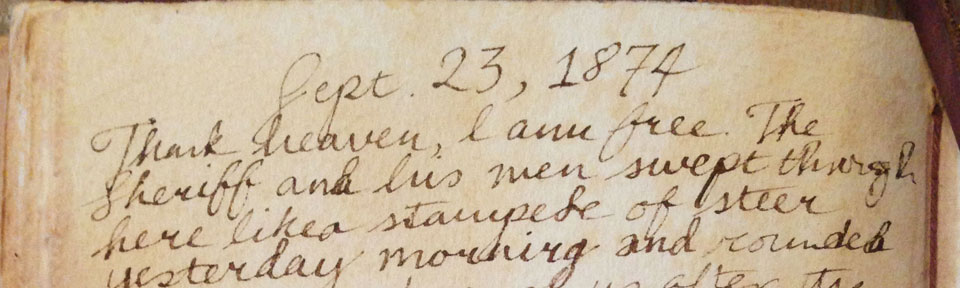 Sept. 23, 1874
Thank heaven, I am free. The
Sheriff and his men swept through
here like a stampede of steer
yesterday morning and rounded
us after the